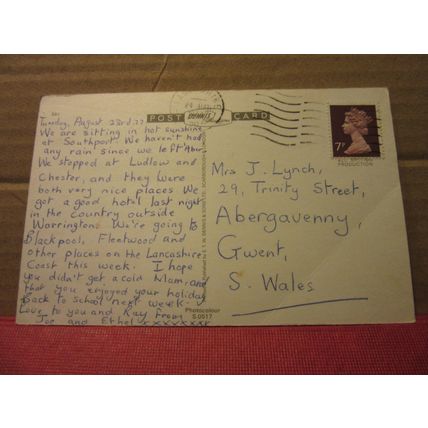 POST CARD
DENNIS
Tuesday, August 23rd, 77
We are sitting in hot sunshine
at Southport. We haven't had
any rain since we left Aber.
We stopped at Ludlow and
Chester, and they were
both very nice places. We
got a good hotel last night
in the country outside
Warrington. We're going to
Blackpool, Fleetwood and
other places on the Lancashire
Coast this week. I hope
you didn't get a cold Mam, and
that you enjoyed your holiday
Back to school next week.
Love to you and Kay from
Joe and Ethel x x x x x x x
Photocolour
S 0517
7P
PRODUCTION
Mrs J. Lynch,
29, Trinity Street,
Abergavenny,
Gwent,
S. Wales